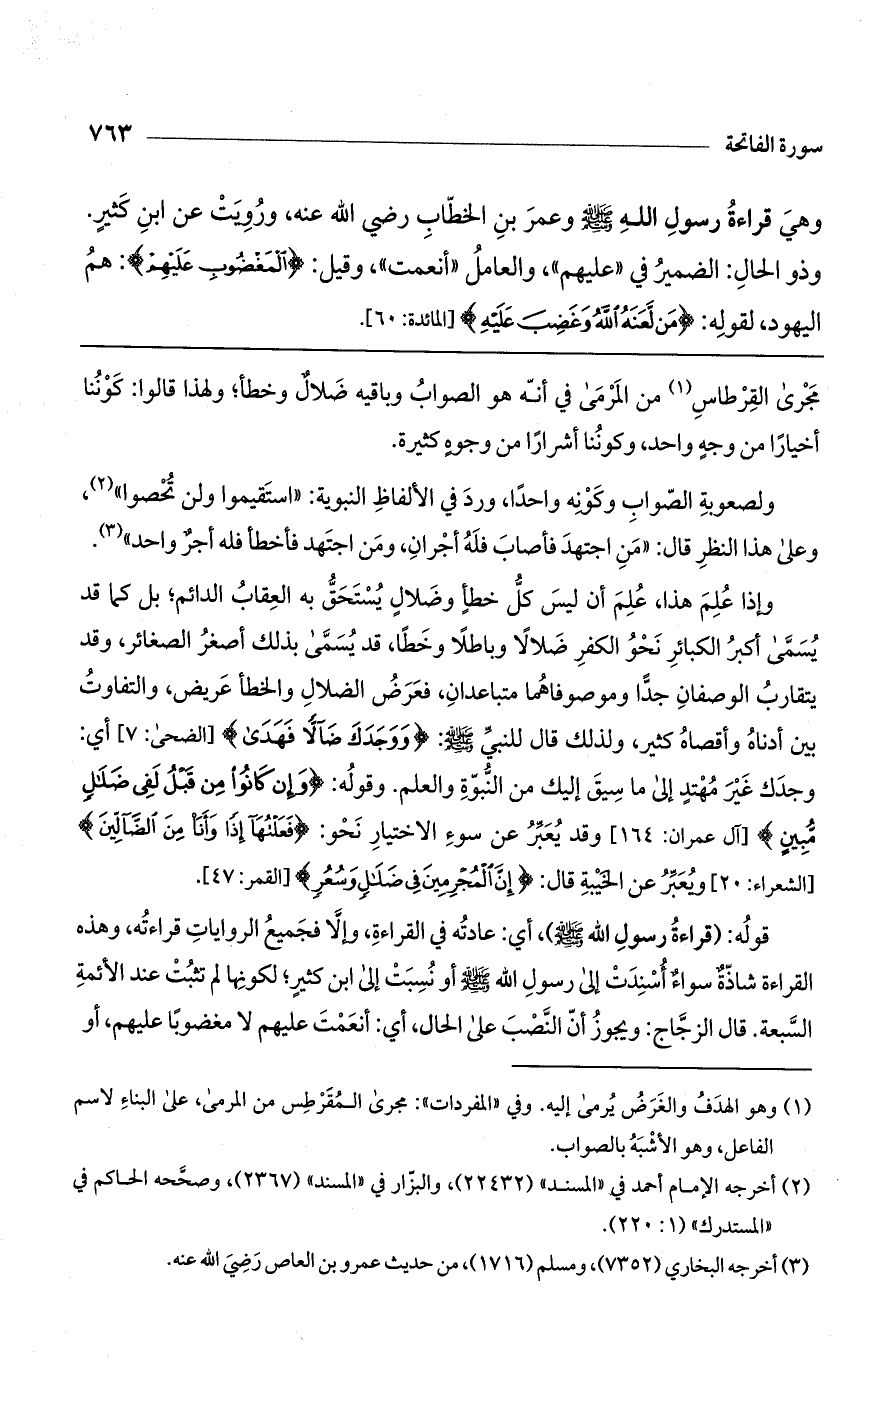 سورة الفاتحة ٧٦٣
وهيَ قراءةُ رسولِ اللهِ ﷺ وعمرَ بنِ الخطّابِ رضي الله عنه، ورُوِيَتْ عن ابنِ كَثيرٍ.
وذو الحالِ: الضميرُ في «عليهم»، والعاملُ «أنعمت»، وقيل: ﴿ٱلْمَغْضُوبِ عَلَيْهِمْ﴾: همُ
اليهود، لقولِه: ﴿مَن لَّعَنَهُ ٱللَّهُ وَغَضِبَ عَلَيْهِ﴾ [المائدة: ٦٠].
مَجْرىٰ القِرْطاسِ(١) من المَرْمَىٰ في أنّه هو الصوابُ وباقيه ضَلالٌ وخطأ؛ ولهذا قالوا: كَوْنُنا
أخيارًا من وجهٍ واحد، وكونُنا أشرارًا من وجوهٍ كثيرة.
ولصعوبةِ الصّوابِ وكَوْنِه واحدًا، وردَ في الألفاظِ النبوية: «استَقيموا ولن تُحْصوا»(٢)،
وعلىٰ هذا النظرِ قال: «مَنِ اجتهدَ فأصابَ فلَهُ أجْرانِ، ومَن اجتَهد فأخطأ فله أجرٌ واحد»(٣).
وإذا عُلِمَ هذا، عُلِمَ أن ليسَ كلُّ خطأٍ وضَلالٍ يُسْتَحَقُّ به العِقابُ الدائم؛ بل كما قد
يُسَمَّىٰ أكبرُ الكبائرِ نَحْوُ الكفرِ ضَلالًا وباطلًا وخَطًا، قد يُسَمَّىٰ بذلك أصغرُ الصغائر، وقد
يتقاربُ الوصفانِ جدًّا وموصوفاهُما متباعدانِ، فعَرَضُ الضلالِ والخطأ عَريض، والتفاوتُ
بين أدناهُ وأقصاهُ كثير، ولذلك قال للنبيِّ ﷺ: ﴿وَوَجَدَكَ ضَآلًّا فَهَدَىٰ﴾ [الضحىٰ: ٧] أي:
وجدَك غَيْرَ مُهْتدٍ إلىٰ ما سِيقَ إليك من النُّبوّةِ والعلم. وقولُه: ﴿وَإِن كَانُوا۟ مِن قَبْلُ لَفِى ضَلَـٰلٍ
مُّبِينٍ﴾ [آل عمران: ١٦٤] وقد يُعَبَّرُ عن سوءِ الاختيارِ نَحْو: ﴿فَعَلْتُهَآ إِذًا وَأَنَا۠ مِنَ ٱلضَّآلِّينَ﴾
[الشعراء: ٢٠] ويُعَبَّرُ عن الخَيْبةِ قال: ﴿إِنَّ ٱلْمُجْرِمِينَ فِى ضَلَـٰلٍ وَسُعُرٍ﴾ [القمر: ٤٧].
قولُه: (قراءةُ رسولِ الله ﷺ)، أي: عادتُه في القراءةِ، وإلَّا فجَميعُ الرواياتِ قراءتُه، وهذه
القراءة شاذّةٌ سواءٌ أُسْنِدَتْ إلىٰ رسولِ الله ﷺ أو نُسِبَتْ إلىٰ ابن كثيرٍ؛ لكونِها لم تثبُتْ عند الأئمةِ
السَّبعة. قال الزجّاج: ويجوزُ أنّ النَّصْبَ علىٰ الحال، أي: أنعَمْتَ عليهم لا مغضوبًا عليهم، أو
(١) وهو الهدَفُ والغَرَضُ يُرمىٰ إليه. وفي «المفردات»: مجرىٰ المُقَرْطِس من المرمىٰ، علىٰ البناءِ لاسم
الفاعل، وهو الأشْبَهُ بالصواب.
(٢) أخرجه الإمام أحمد في «المسند» (٢٢٤٣٢)، والبزّار في «المسند» (٢٣٦٧)، وصحَّحه الحاكم في
«المستدرك» (١: ٢٢٠).
(٣) أخرجه البخاري (٧٣٥٢)، ومسلم (١٧١٦)، من حديث عمرو بن العاص رَضِيَ الله عنه.